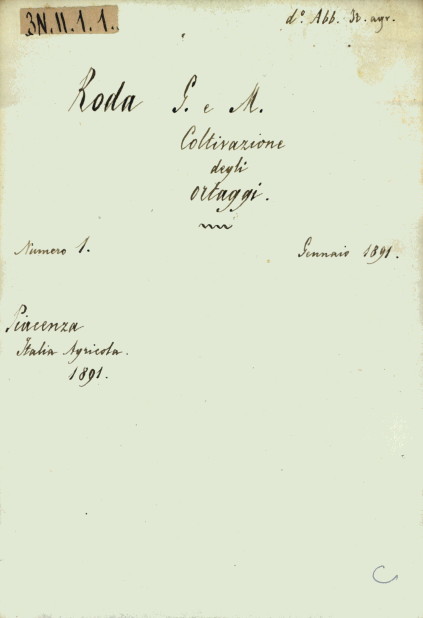 3N.II.1.1.
d.º Abb. 32. agr.
Roda G. e M.
Coltivazione
degli
ortaggi.
Numero 1. Gennaio 1891.
Piacenza
Italia Agricola.
1891.
C